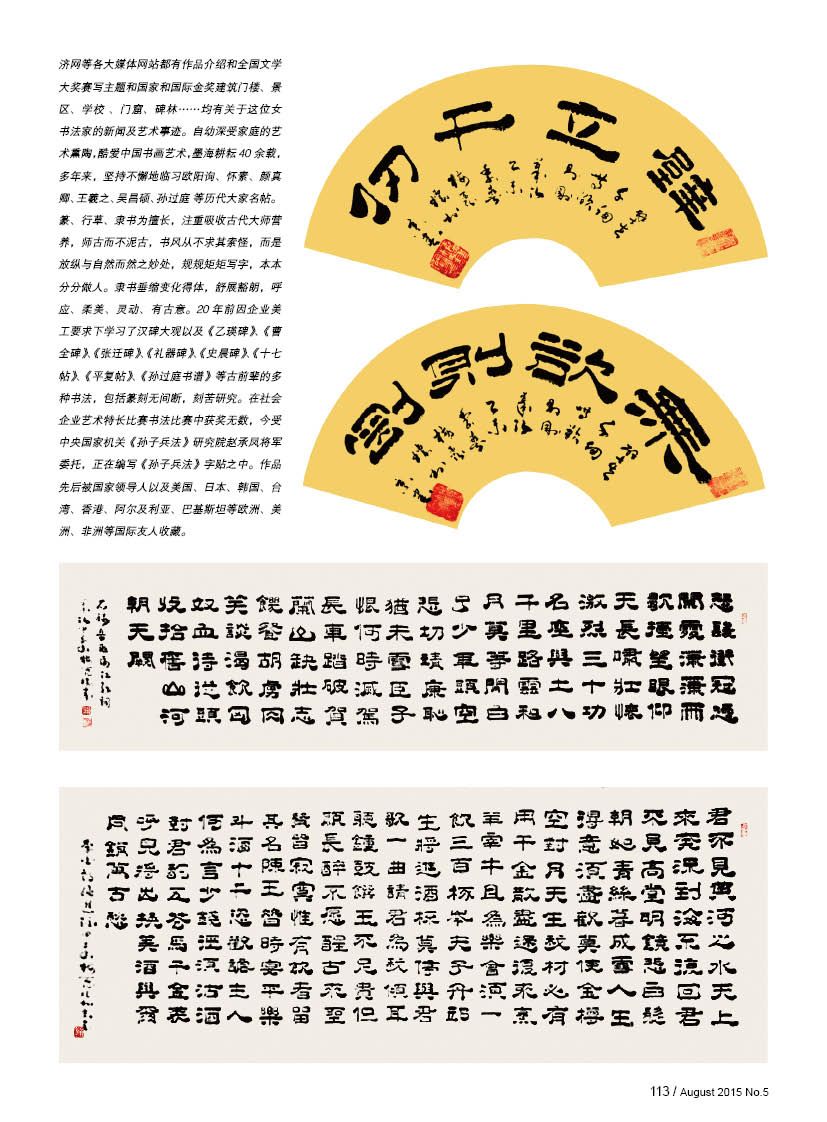 济网等各大媒体网站都有作品介绍和全国文学
大奖赛写主题和国家和国际金奖建筑门楼、景
区、学校 、门窟、碑林……均有关于这位女
书法家的新闻及艺术事迹。自动深受家庭的艺
术熏陶,酷爱中国书画艺术,墨海耕耘 40 余载,
多年来，坚持不懈地临习欧阳询、怀素、颜真
卿、王羲之、吴昌硕、孙过庭 等历代大家名帖。
篆、行草、隶书为擅长，注重吸收古代大师营
养，师古而不泥古，书风从不求其索怪，而是
放纵与自然而然之妙处，规规矩矩写字，本本
分分做人。隶书垂缩变化得体，舒展豁朗，呼
应、柔美、灵动、有古意。20 年前因企业美
工要求下学习了汉碑大观以及《乙瑛碑》、《曹
全碑》、《张迁碑》、《礼器碑》、《史晨碑》、《十七
帖》、《平复帖》、《孙过庭书谱》等古前辈的多
种书法，包括篆刻无间断，刻苦研究。在社会
企业艺术特长比赛书法比赛中获奖无数，今受
中央国家机关《孙子兵法》研究院赵承凤将军
委托，正在编写《孙子兵法》字贴之中。作品
先后被国家领导人以及美国、日本、韩国、台
湾、香港、阿尔及利亚、巴基斯坦等欧洲、美
洲、非洲等国际友人收藏。
壁立千仞
無欲則剛
怒髮衝冠憑
闌處瀟瀟雨
歇擡望眼仰
天長嘯壯懷
激烈三十功
名塵與土八
千里路雲和
月莫等閒白
了少年頭空
悲切靖康恥
猶未雪臣子
恨何時滅駕
長車踏破賀
蘭山缺壯志
饑餐胡虜肉
笑談渴飲匈
奴血待從頭
收拾舊山河
朝天闕
君不見黃河之水天上
來奔流到海不復回君
不見高堂明鏡悲白髮
朝如青絲暮成雪人生
得意須盡歡莫使金樽
空對月天生我材必有
用千金散盡還復來烹
羊宰牛且為樂會須一
飲三百杯岑夫子丹邱
生將進酒杯莫停與君
歌一曲請君為我傾耳
聽鐘鼓饌玉不足貴但
願長醉不願醒古來聖
賢皆寂寞惟有飲者留
其名陳王昔時宴平樂
斗酒十千恣歡謔主人
何為言少錢徑須沽酒
對君酌五花馬千金裘
呼兒將出換美酒與爾
同銷萬古愁
113 / August 2015 No.5